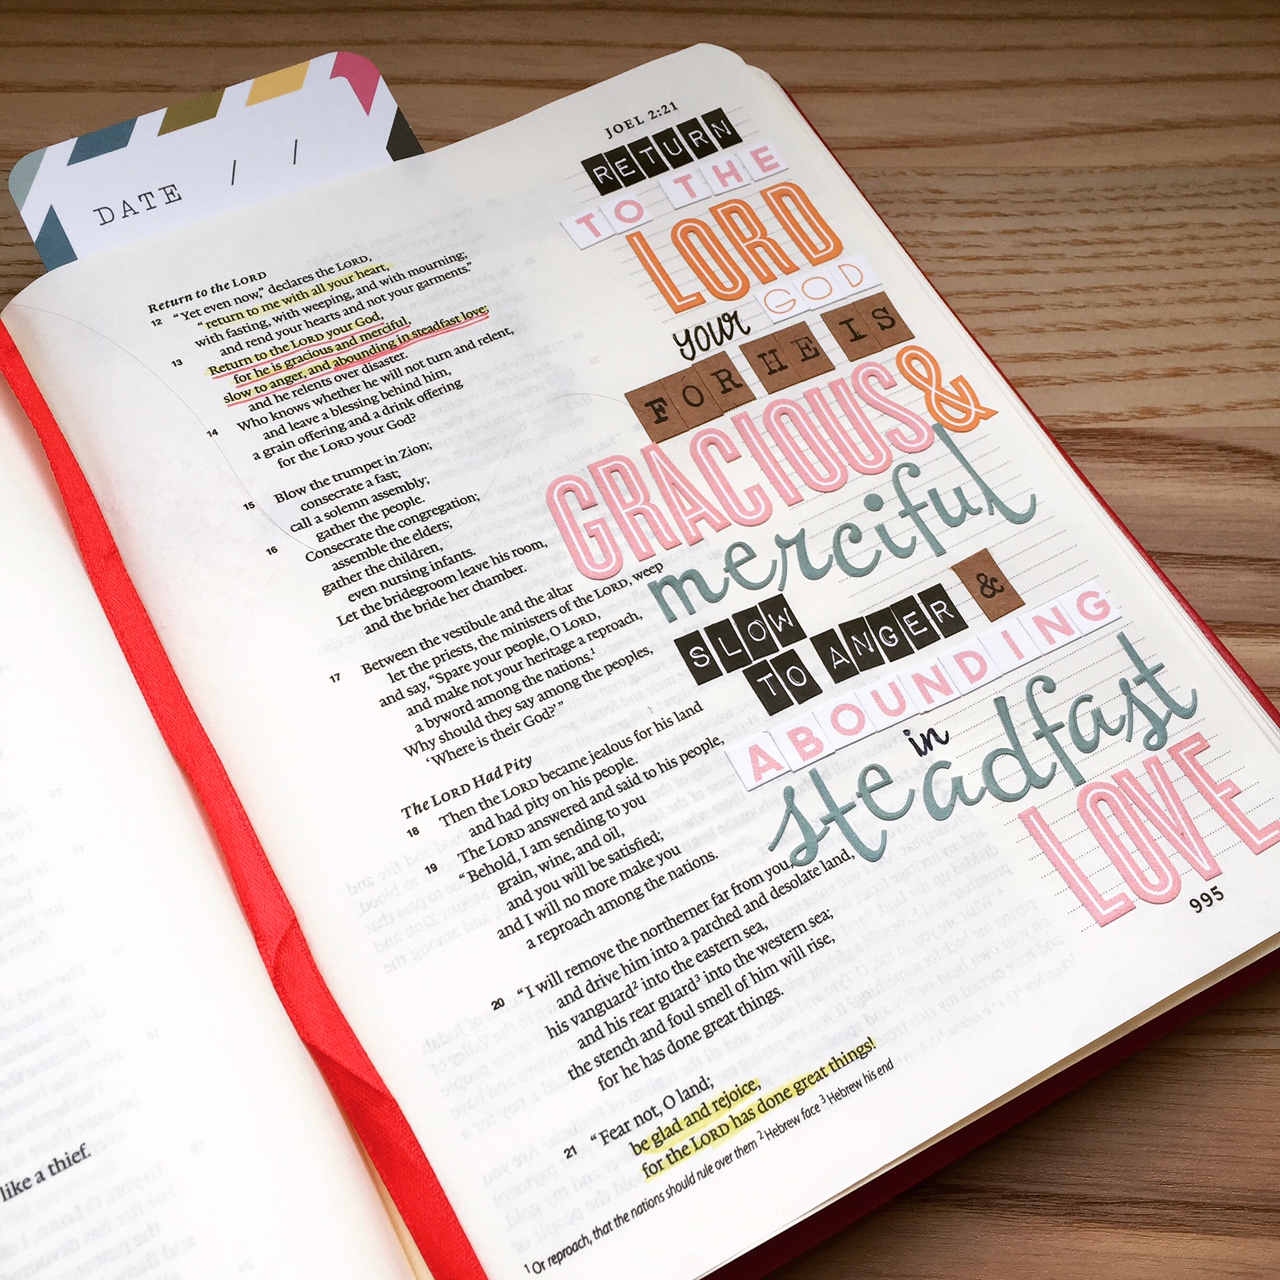 DATE / /
JOEL 2:21
Return to the LORD
12 “Yet even now,” declares the LORD,
“return to me with all your heart,
with fasting, with weeping, and with mourning;
and rend your hearts and not your garments.”
13 Return to the LORD your God,
for he is gracious and merciful,
slow to anger, and abounding in steadfast love;
and he relents over disaster.
14 Who knows whether he will not turn and relent,
and leave a blessing behind him,
a grain offering and a drink offering
for the LORD your God?
15 Blow the trumpet in Zion;
consecrate a fast;
call a solemn assembly;
16 gather the people.
Consecrate the congregation;
assemble the elders;
gather the children,
even nursing infants.
Let the bridegroom leave his room,
and the bride her chamber.
17 Between the vestibule and the altar
let the priests, the ministers of the LORD, weep
and say, “Spare your people, O LORD,
and make not your heritage a reproach,
a byword among the nations.1
Why should they say among the peoples,
‘Where is their God?’”
The LORD Had Pity
18 Then the LORD became jealous for his land
and had pity on his people.
19 The LORD answered and said to his people,
“Behold, I am sending to you
grain, wine, and oil,
and you will be satisfied;
and I will no more make you
a reproach among the nations.
20 “I will remove the northerner far from you,
and drive him into a parched and desolate land,
his vanguard2 into the eastern sea,
and his rear guard3 into the western sea;
the stench and foul smell of him will rise,
for he has done great things.
21 “Fear not, O land;
be glad and rejoice,
for the LORD has done great things!
1 Or reproach, that the nations should rule over them 2 Hebrew face 3 Hebrew his end
RETURN
TO THE
LORD
your GOD
FOR HE IS
GRACIOUS &
merciful
SLOW
TO ANGER &
ABOUNDING
in
steadfast
LOVE
995
like a thief.